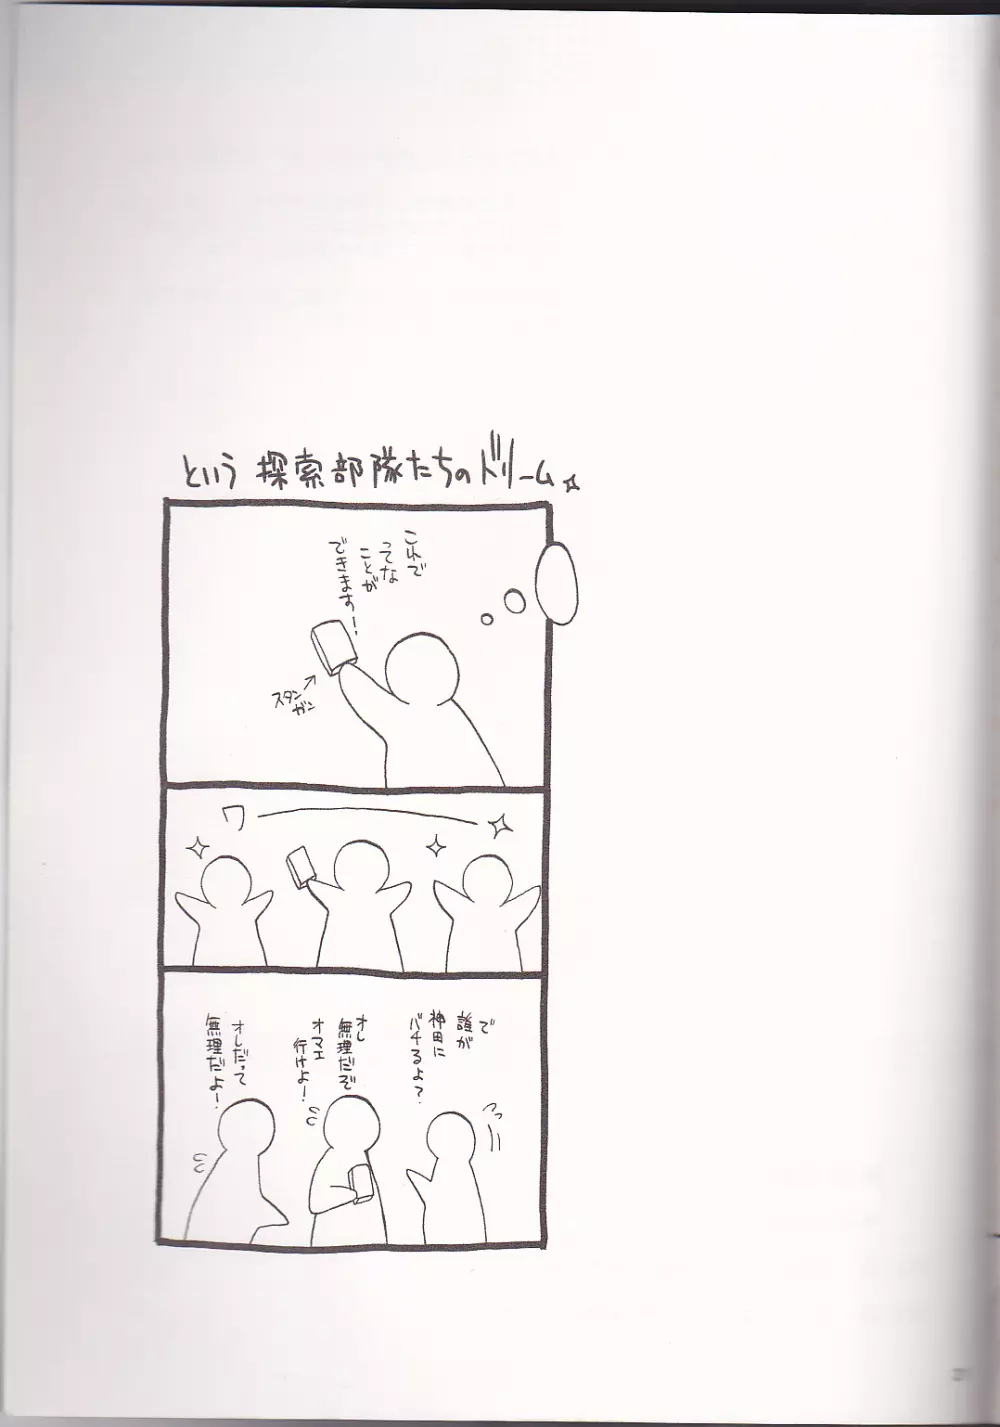 という 探索部隊たちのドリーム
これで
ってな
ことが
できます!
スタン
ガン
ワ
で
誰が
神田に
バチるよ?
オレ
無理だぞ
オマエ
行けよ!
オレだって
無理だよ!